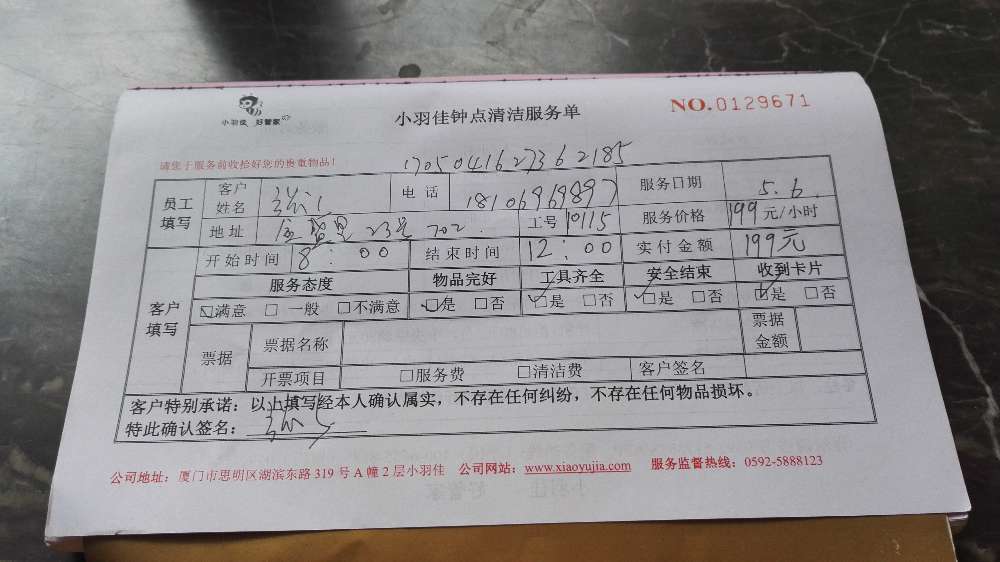 小羽佳 好管家
小羽佳钟点清洁服务单
NO.0129671
请您于服务前收拾好您的贵重物品！
1705041627362185
员工填写 客户姓名 电话 18106969897 服务日期 5.6.
地址 金 里 23号 702. 工号 服务价格 199 元/小时
客户填写 开始时间 8:00 结束时间 12:00 实付金额 199元
服务态度 物品完好 工具齐全 安全结束 收到卡片
☑满意 □一般 □不满意 ☑是 □否 ☑是 □否 ☑是 □否 ☑是 □否
票据 票据名称 票据金额
开票项目 □服务费 □清洁费 客户签名
客户特别承诺：以上填写经本人确认属实，不存在任何纠纷，不存在任何物品损坏。
特此确认签名：
公司地址：厦门市思明区湖滨东路 319 号 A 幢 2 层小羽佳 公司网站：www.xiaoyujia.com 服务监督热线：0592-5888123